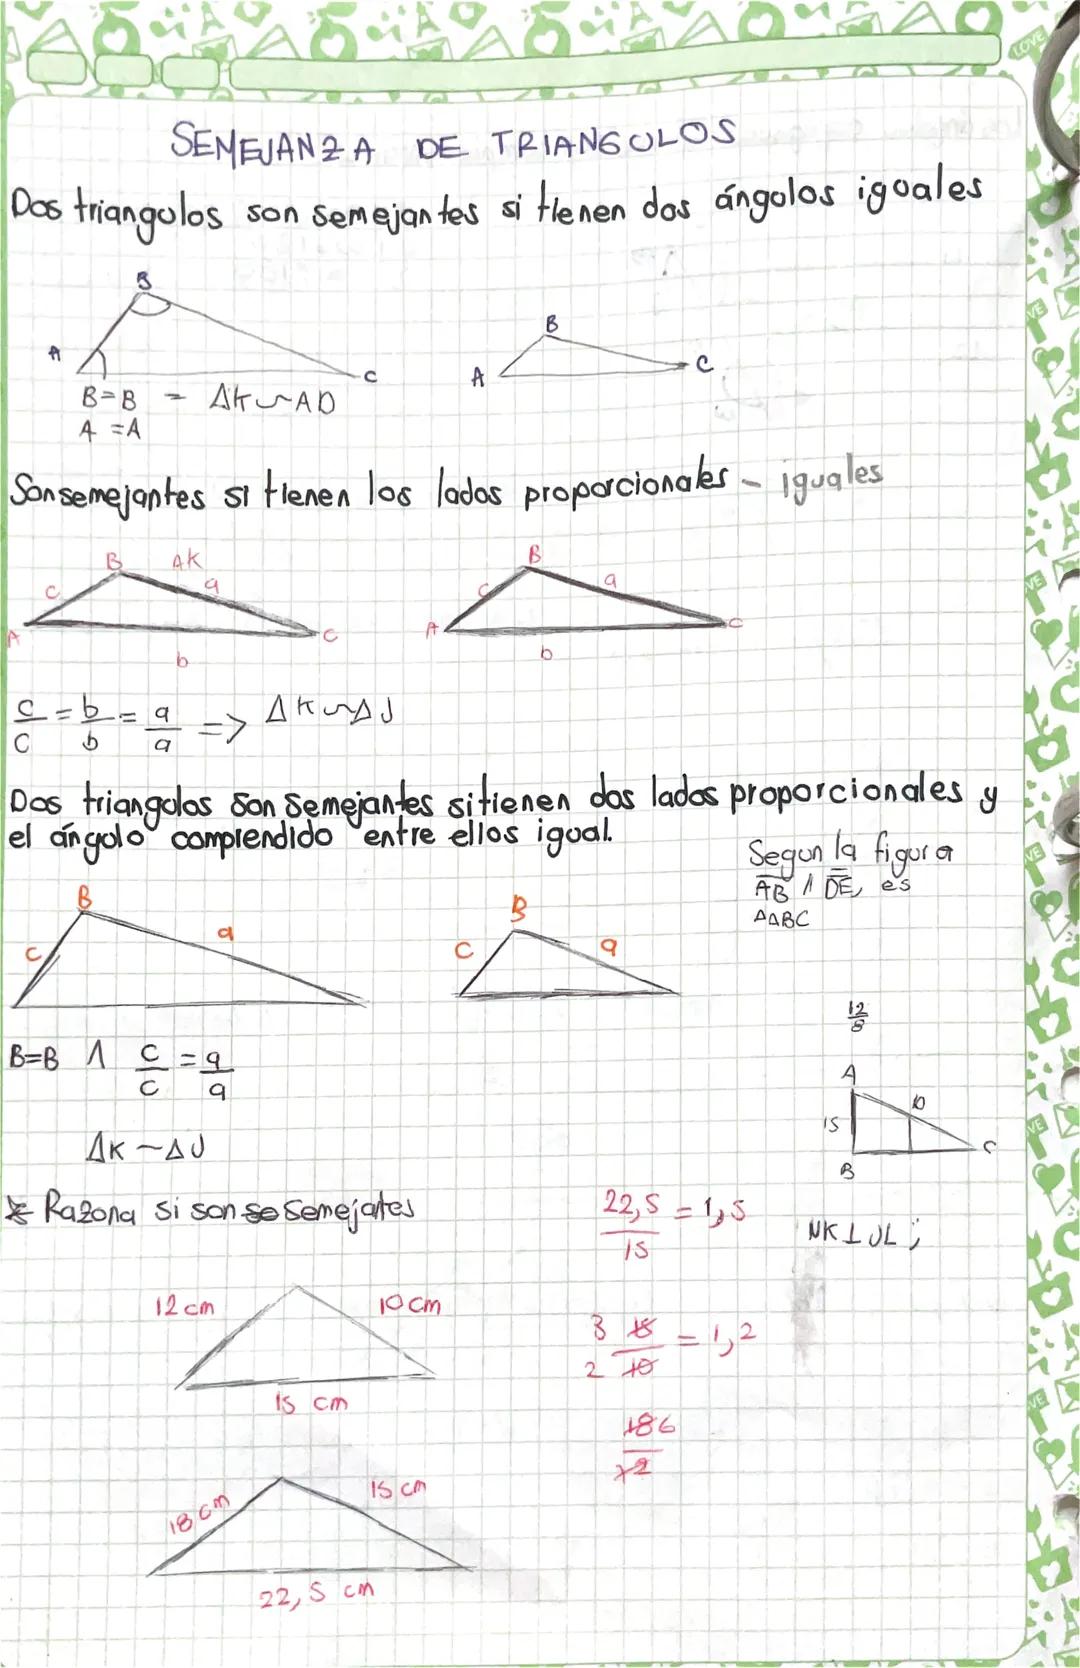 SEMEJANZA DE TRIANGULOS
Dos triangulos son semejantes si tienen dos ángulos iguales
B
A
C
B
A
C
B=B - ΔK~ΔD
A=A
Son semejantes si tienen los lados proporcionales - iguales
B
AK
c
a
A
C
b
B
c
a
A
C
b
c/c = b/b = a/a => ΔK~ΔJ
Dos triangulos son semejantes si tienen dos lados proporcionales y
el ángulo comprendido entre ellos igual.
Segun la figura
AB // DE, es
ΔABC
B
c
a
B
c
a
12/8
B=B ∧ c/c = a/a
A
15
D
C
B
ΔK ~ ΔJ
* Razona si son se semejates
22,5/15 = 1,5
NK⊥JL;
12 cm
10 cm
15 cm
3 15/10 2 = 1,2
186/12
18 cm
15 cm
22,5 cm
LOVE